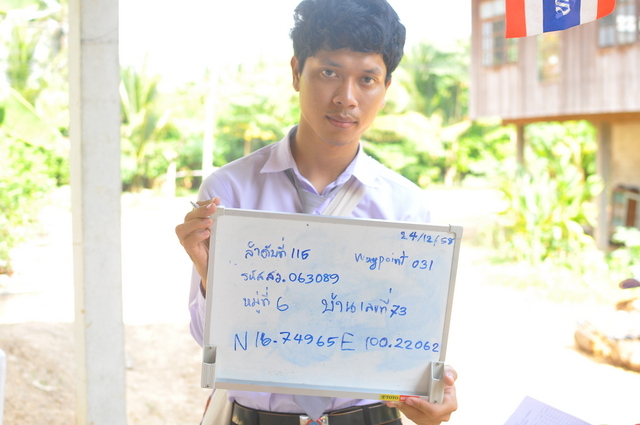 24/12/58
ลำดับที่ 115 Waypoint 031
รหัสสว. 063089
หมู่ที่ 6 บ้านเลขที่ 73
N 16.74965 E 100.22062